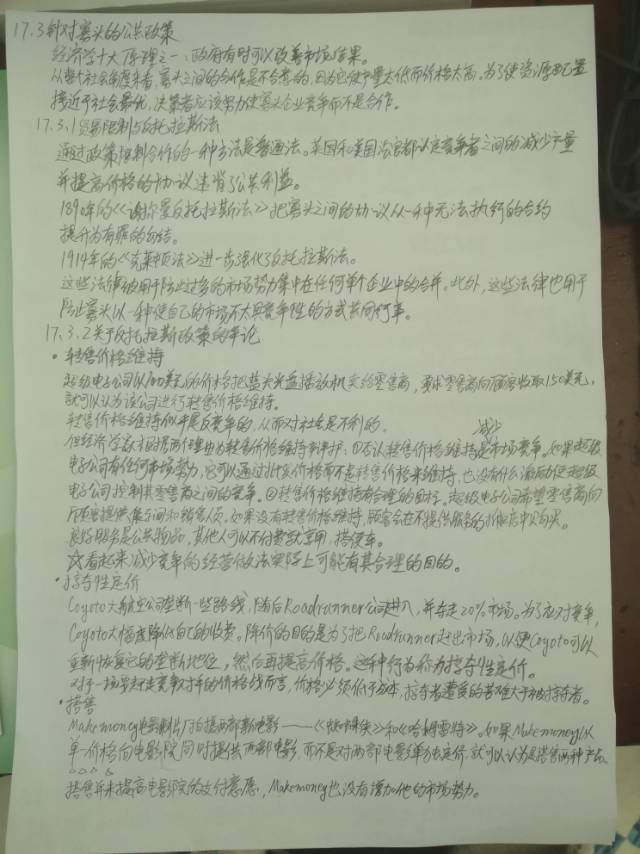 17.3 针对寡头的公共政策
经济学十大原理之一,政府有时可以改善市场结果。
从整个社会角度来看,寡头之间的合作是不合意的,因为它使产量太低而价格太高。为了使资源配置
接近于社会最优,决策者应该努力使寡头企业竞争而不是合作。
17.3.1 贸易限制与反托拉斯法
通过政策限制合作的一种方法是普通法。英国和美国法官都认定竞争者之间的减少产量
并提高价格的协议违背了公共利益。
1890年的《谢尔曼反托拉斯法》把寡头之间的协议从一种无法执行的合约
提升为有罪的勾结。
1914年的《克莱顿法》进一步强化了反托拉斯法。
这些法律被用于防止过多的市场势力集中在任何单个企业中的合并。此外,这些法律也用于
防止寡头以一种使自己的市场不太具竞争性的方式共同行事。
17.3.2 关于反托拉斯政策的争论
• 转售价格维持
超级电子公司以100美元的价格把蓝光光盘播放机卖给零售商,要求零售商向顾客收取150美元,
就可以认为该公司进行转售价格维持。
转售价格维持似乎是反竞争的,从而对社会是不利的。
但经济学家根据两个理由为转售价格维持辩护:①否认转售价格维持是减少市场竞争。如果超级
电子公司有任何市场势力,它可以通过批发价格而不是转售价格来维持,也没有什么激励促超级
电子公司控制其零售商之间的竞争。②转售价格维持有合理的目标。超级电子公司希望零售商向
顾客提供 空间和销售人员,如果没有转售价格维持,顾客会在不提供服务的 店中购买。
良好服务是公共物品,其他人可以不付费就享用,搭便车。
☆看起来减少竞争的经营做法实际上可能有其合理的目的。
• 掠夺性定价
Coyoto大航空公司垄断一些路线,随后Roadrunner公司进入,并夺走20%市场。为了应对竞争,
Coyoto大幅度降低自己的收费。降价的目的是为了把Roadrunner赶出市场,以便Coyoto可以
重新恢复它的垄断地位,然后再提高价格。这种行为称为掠夺性定价。
对于一场驱赶竞争对手的价格战而言,价格必须低于成本,掠夺者遭受的苦难大于被掠夺者。
• 搭售
Makemoney电影制片厂拍摄两部新电影——《蜘蛛侠》和《哈姆雷特》。如果Makemoney以
单一价格向电影院同时提供两部电影,而不是对两部电影单独定价,就可以认为是搭售两种产品。
搭售并未提高电影院的支付意愿,Makemoney也没有增加他的市场势力。